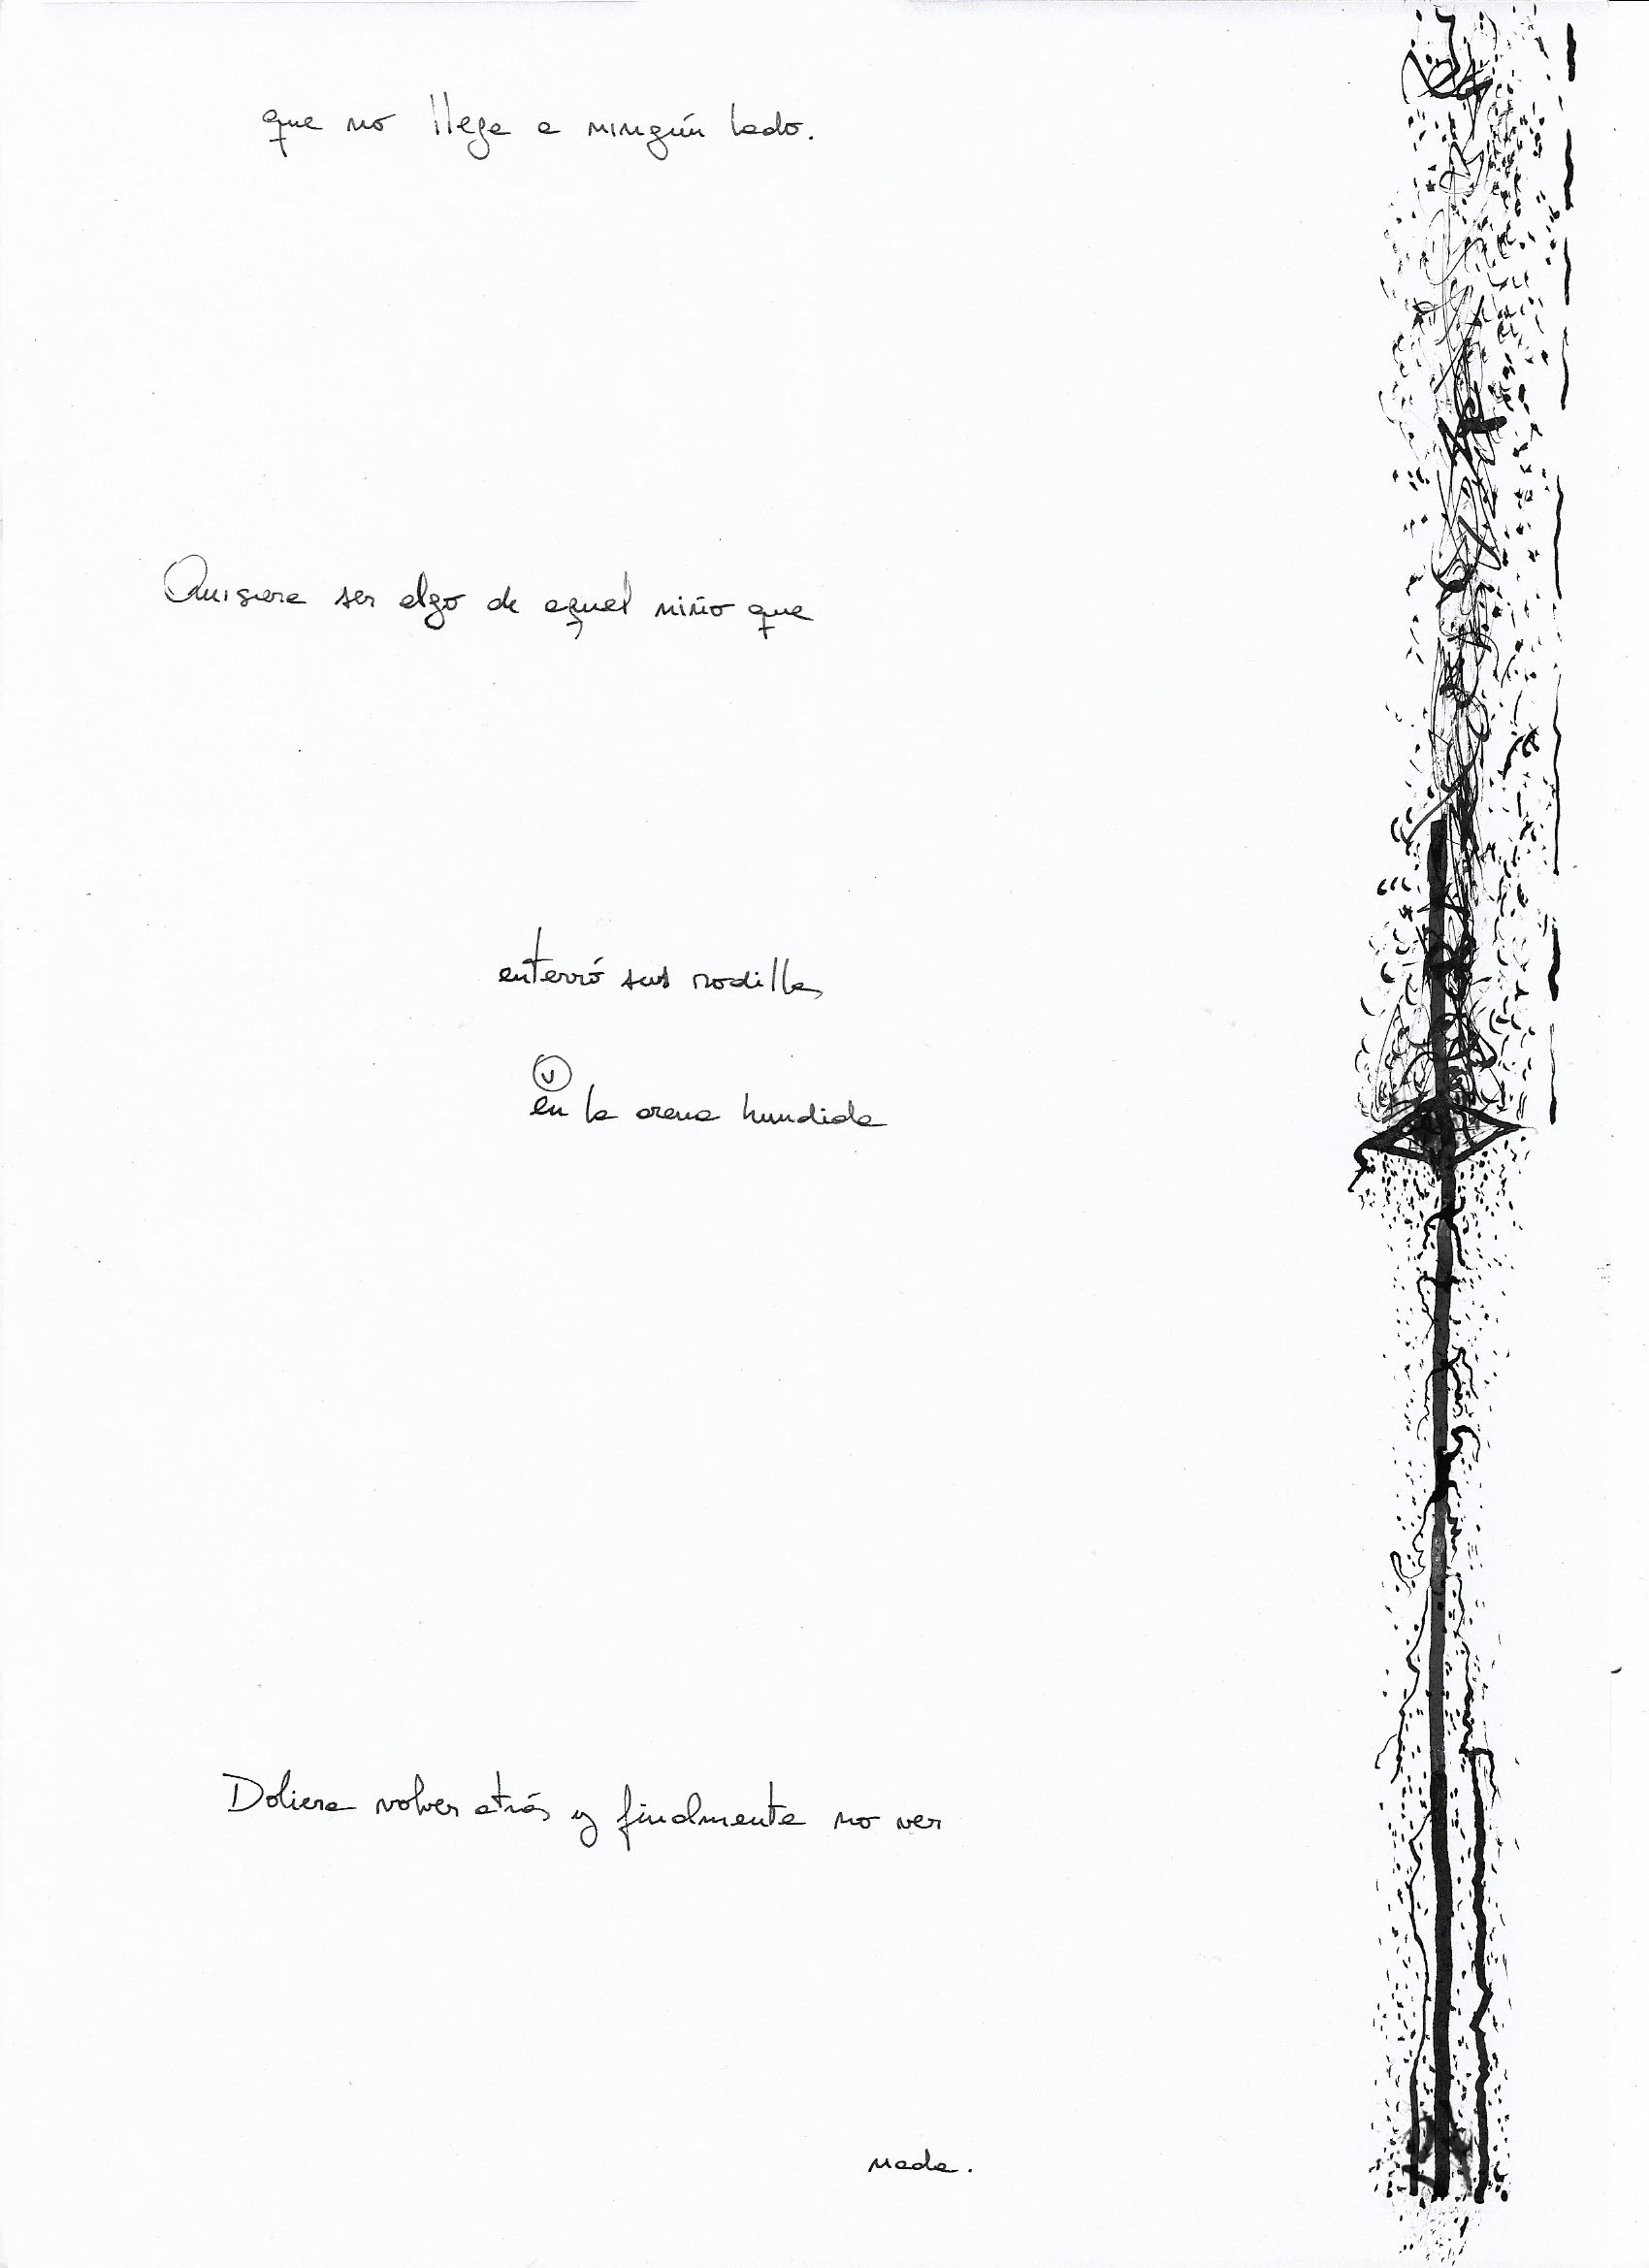 que no llega a ningún lado.
Quisiera ser algo de aquel niño que
enterró sus rodillas
v
en la arena hundida
Doliera volver atrás y finalmente no ver
nada.